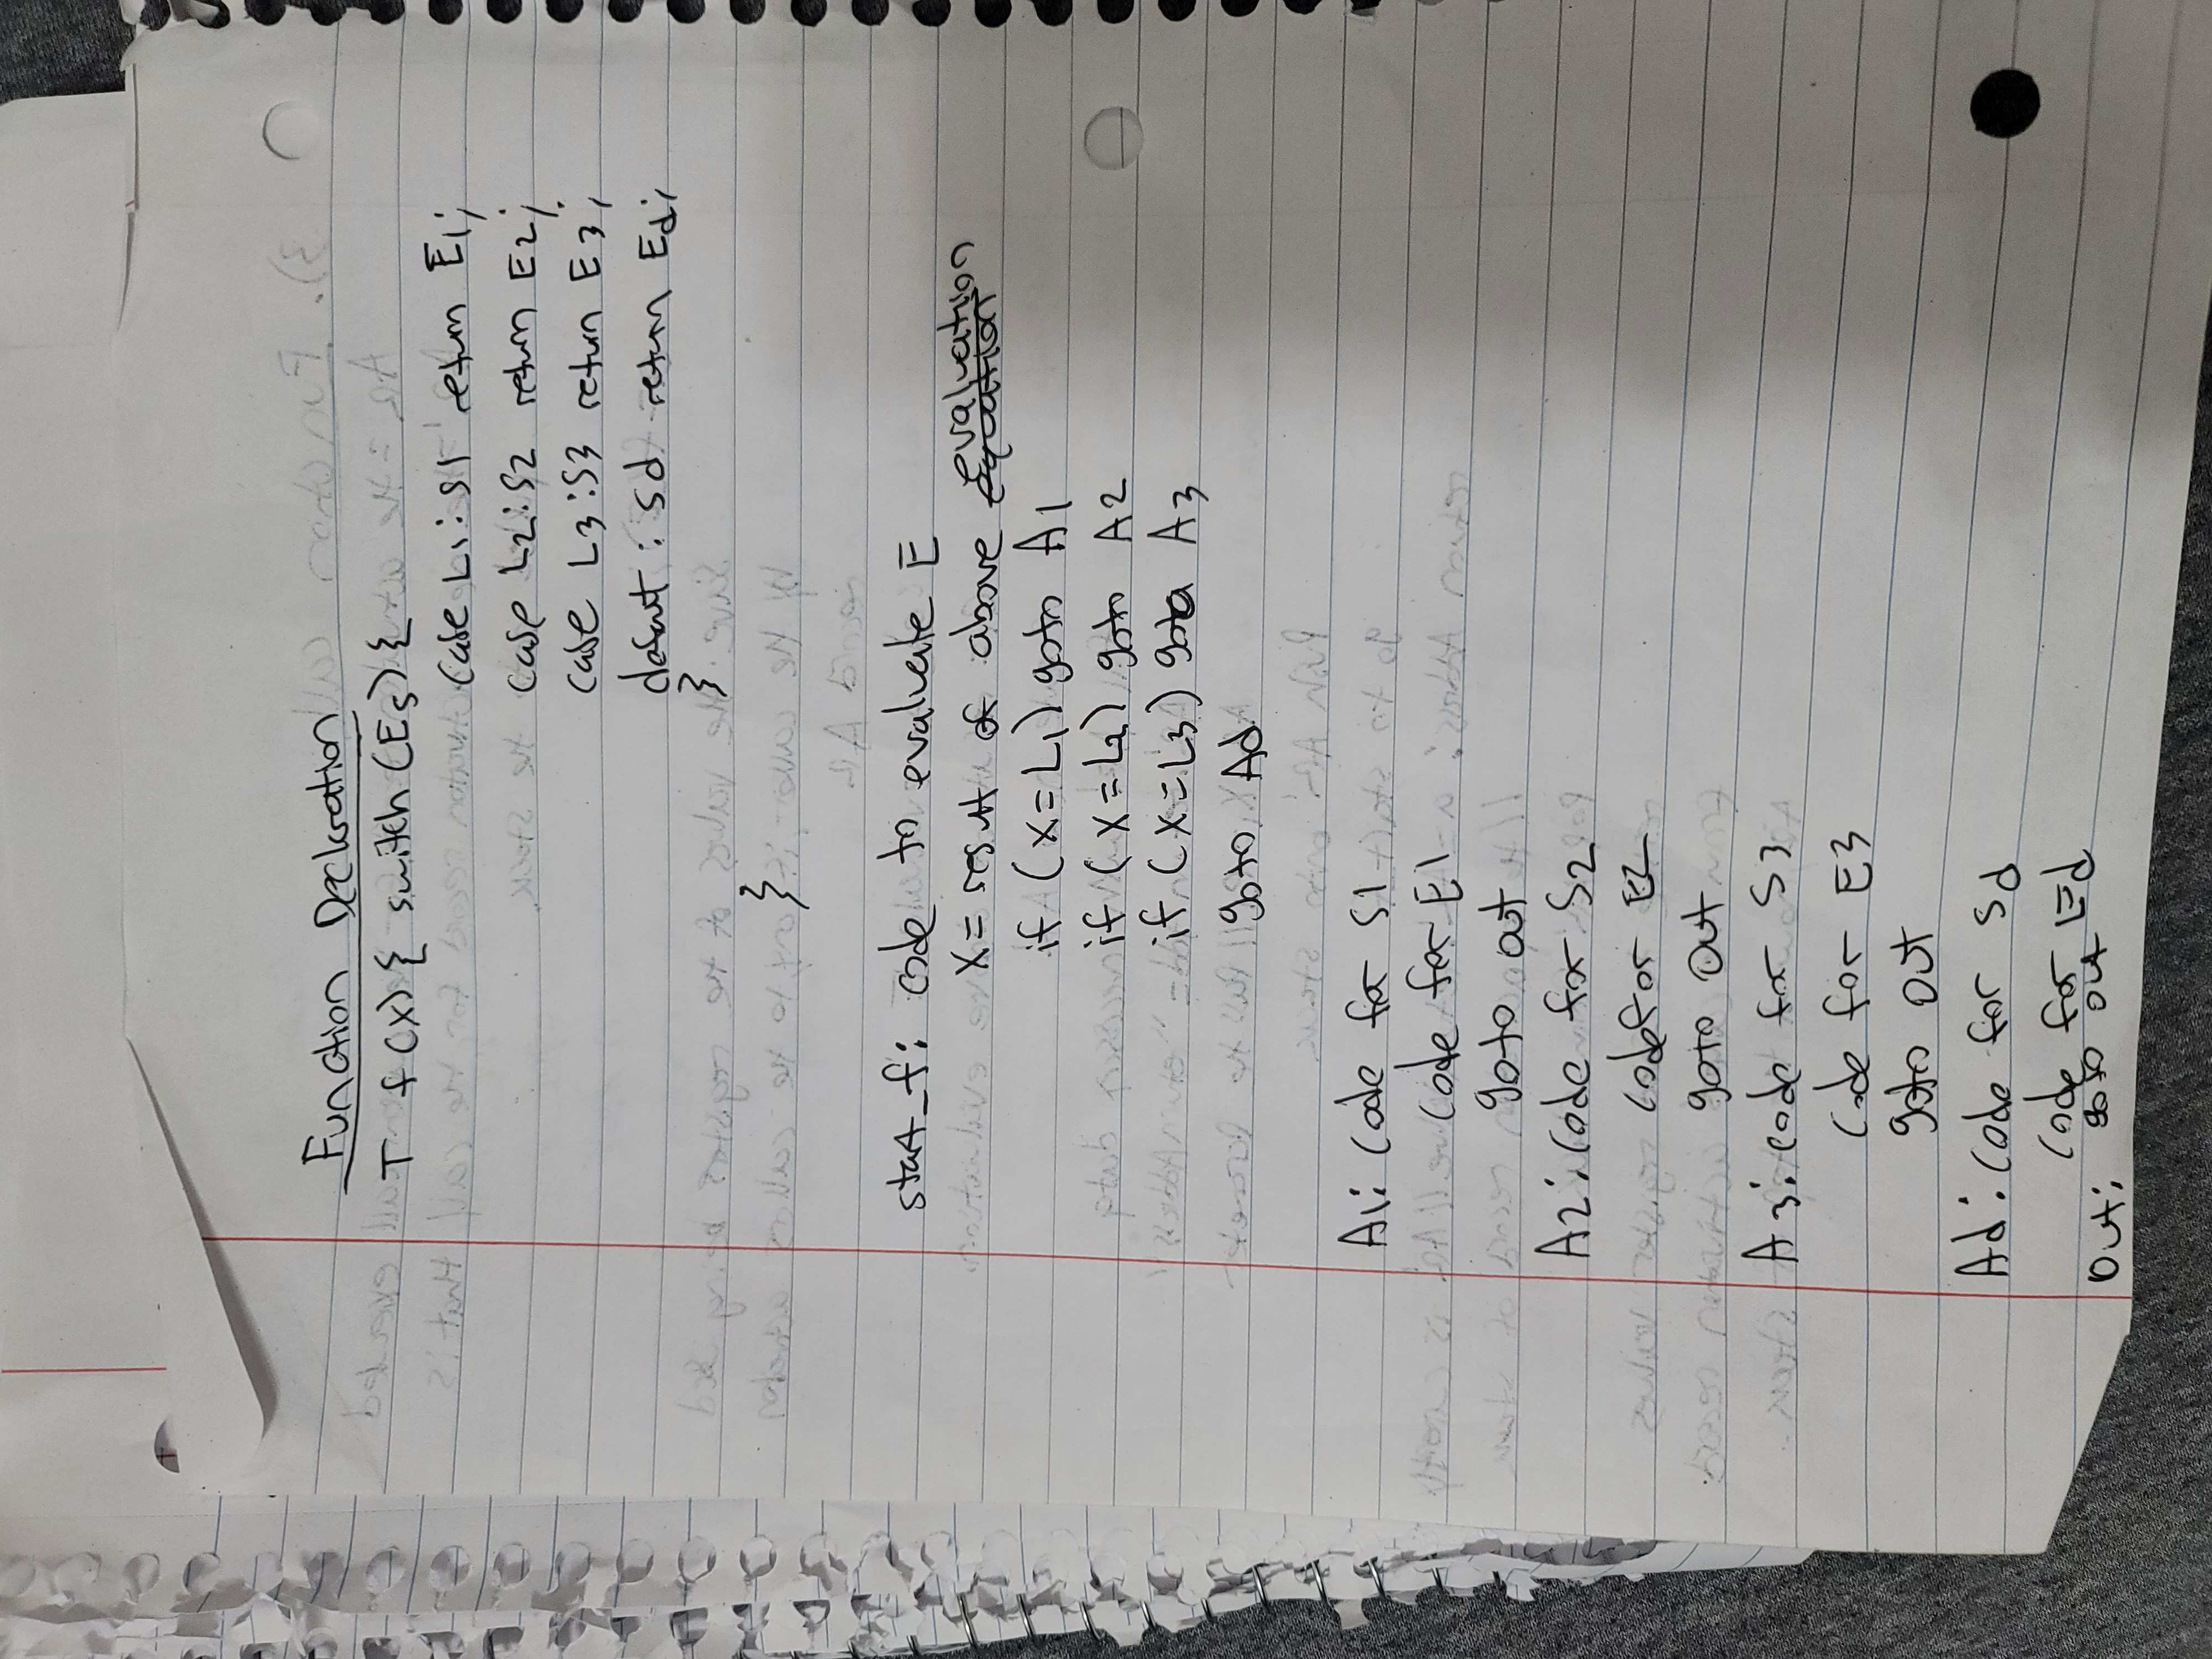 Function Declaration
T f(x){ switch (Es) {
case L1: S1 return E1;
case L2: S2 return E2;
case L3: S3 return E3;
defaut : Sd return Ed;
}
}
start_f: code to evaluate E
X = result of above equation evaluation
if (X=L1) goto A1
if (X=L2) goto A2
if (X=L3) goto A3
goto Ad
A1: Code for S1
Code for E1
goto out
A2: Code for S2
Code for E2
goto out
A3: code for S3
Code for E3
goto out
Ad: Code for Sd
Code for Ed
goto out
Out: